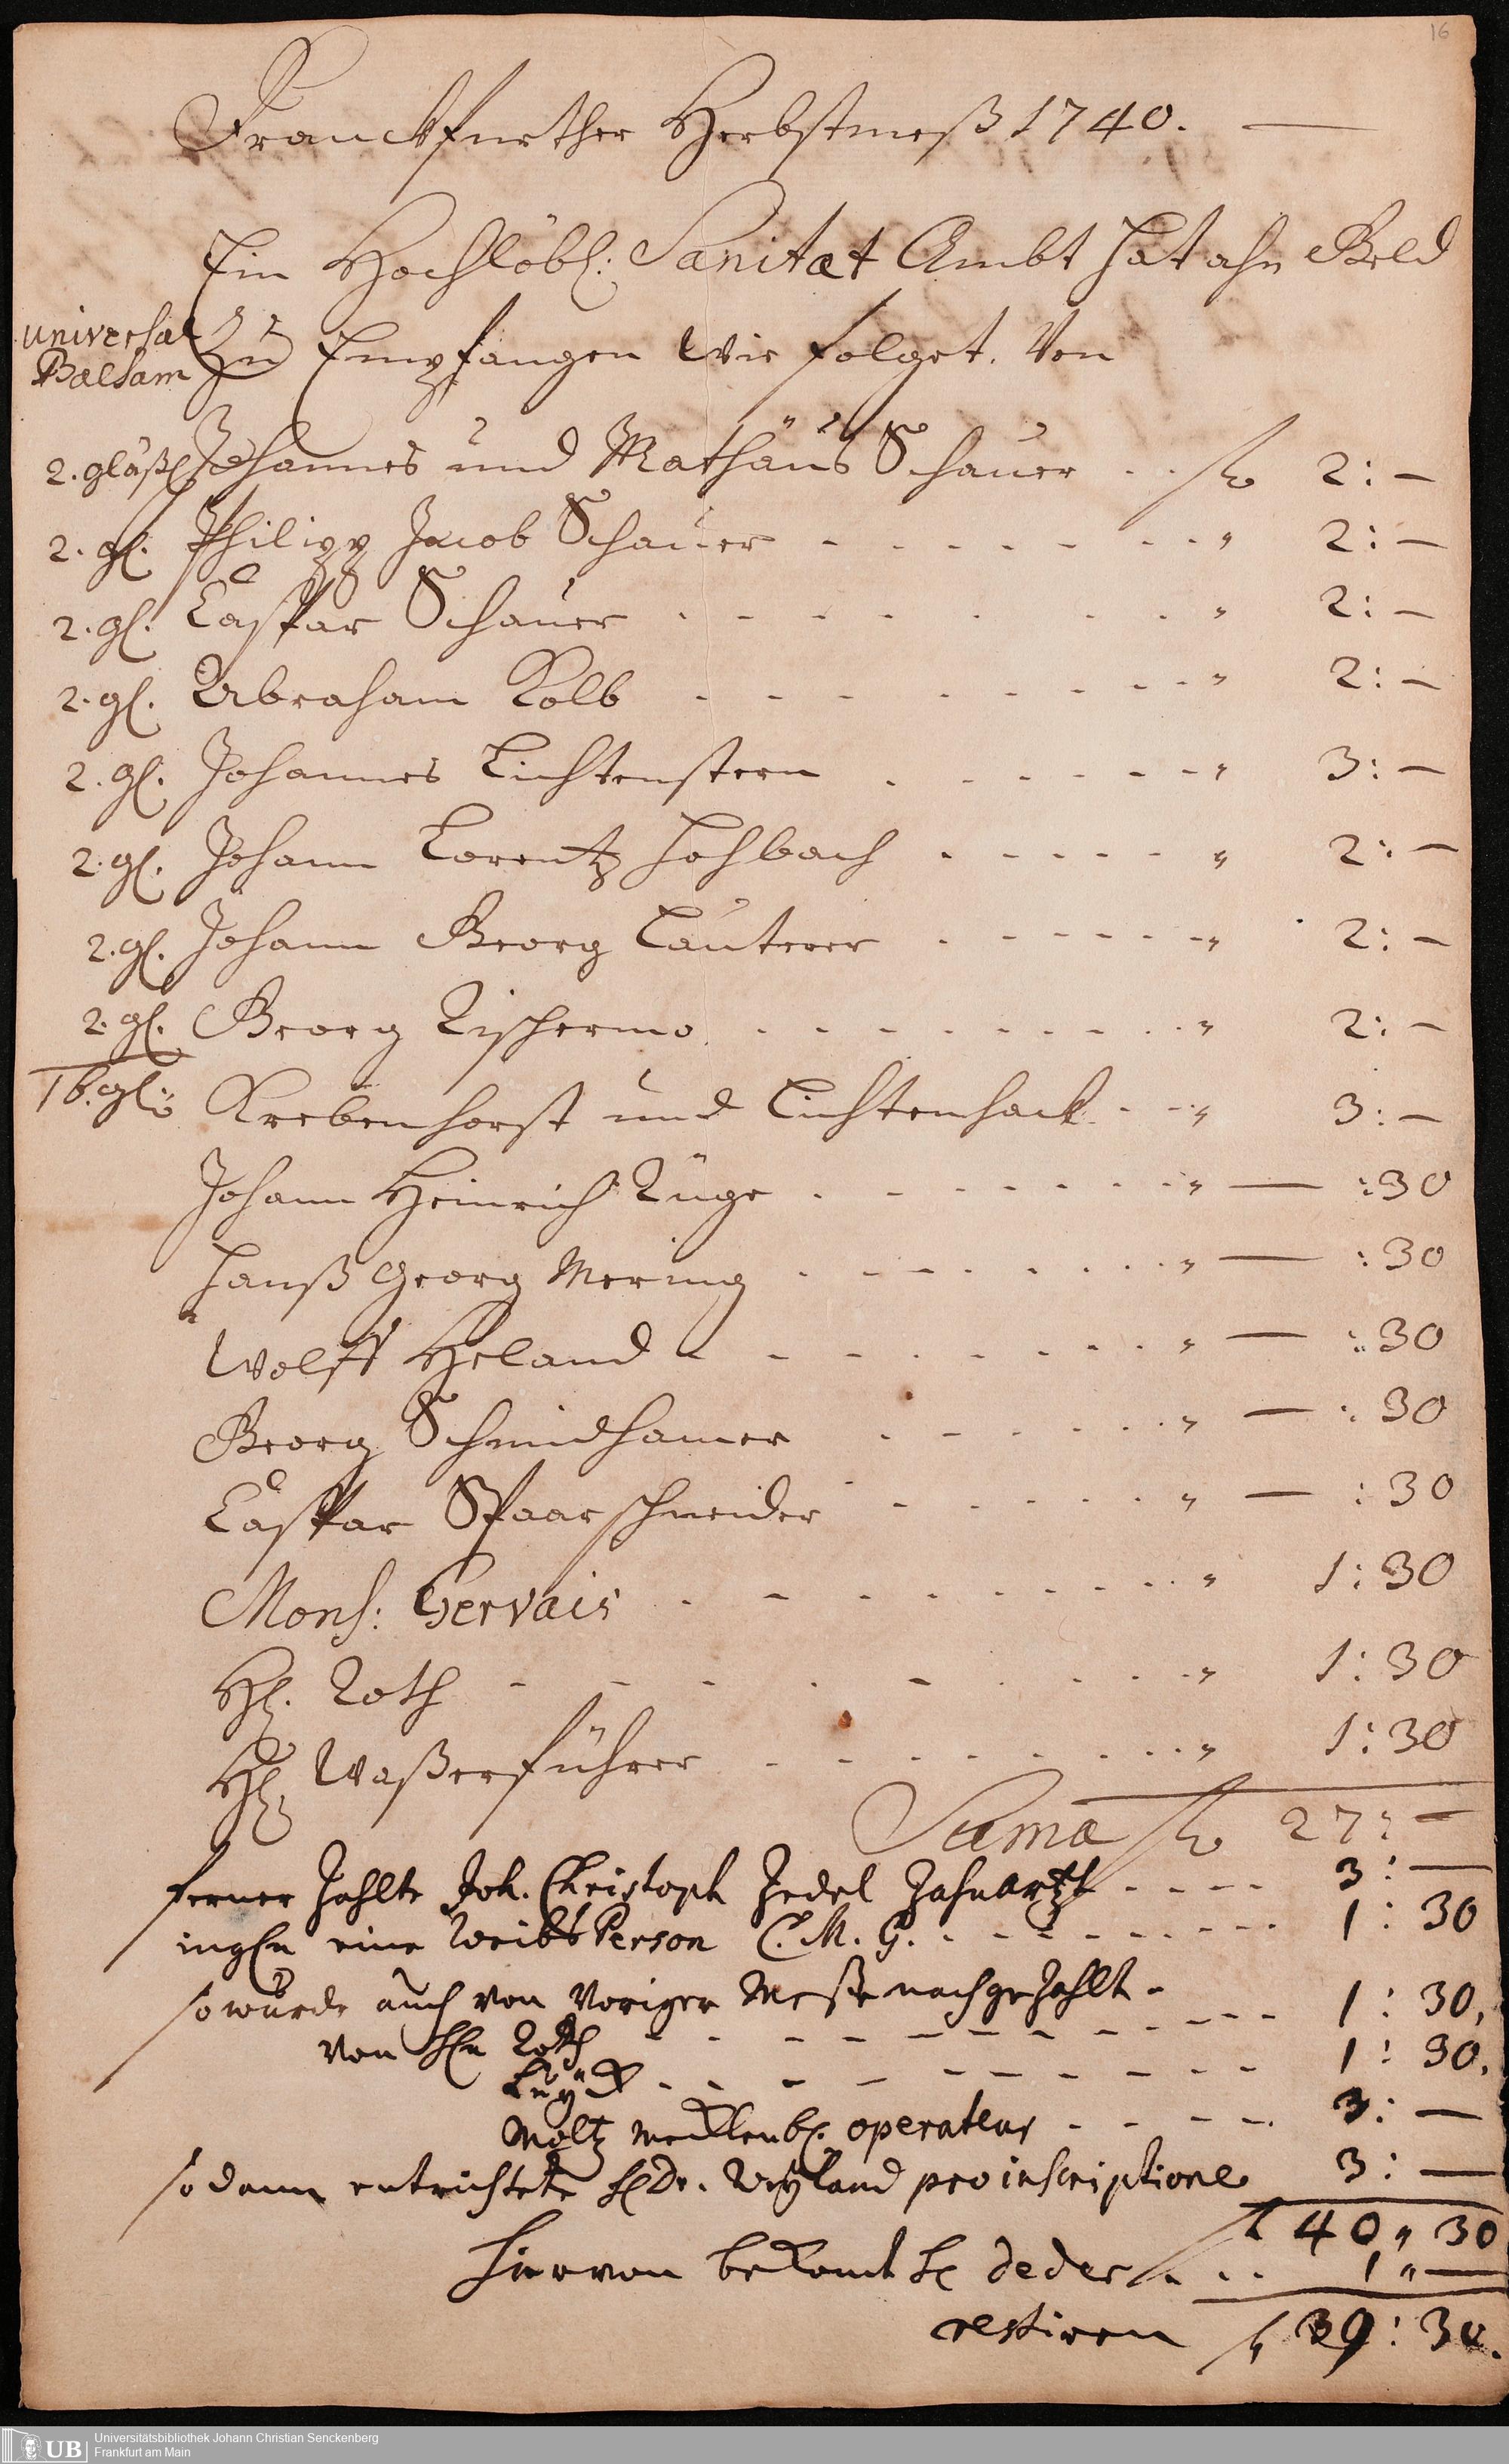 16
Franckfurther Herbstmeß 1740. —
Ein Hochlöbl: Sanitæt Ambt hat ahn Geld
Zu Empfangen Wie folget. Von
universal
Balsam
2. gläßl Johannes und Mathäus Schauer . . fl 2: —
2. gl. Philipp Jacob Schauer - - - - - - - " 2: —
2. gl. Caspar Schauer - - - - - - - " 2: —
2. gl. Abraham Kolb - - - - - - - " 2: —
2. gl. Johannes Lichtenstern - - - - - - " 3: —
2. gl. Johann Lorentz Hohbach - - - - - " 2: —
2. gl. Johann Georg Lauterer - - - - - - " 2: —
2. gl. Georg Rischermo - - - - - - - " 2: —
16. gl: Krebenhorst und Lichtenhack - - " 3: —
Johann Heinrich Rüge - - - - - - - " — : 30
Hanß Georg Mering - - - - - - - " — : 30
Wolff Heland - - - - - - - " — : 30
Georg Schmidhamer - - - - - - " — : 30
Caspar Spaarschneider - - - - - - " — : 30
Mons: Gervais - - - - - - - " 1: 30
Hl. Roth - - - - - - - - " 1: 30
Hl. Waßerführer - - - - - - - " 1: 30
Suma fl 27: —
ferner zahlte Joh. Christoph Zedel Zahnartzt - - - - 3: —
ingln eine Weibs Person C. M. G. - - - - - - - 1: 30
so wurde auch von voriger Messe nachgezahlt -
von Hln Roth - - - - - - - - - 1: 30,
- - - - - - - - 1: 30.
Moltz operateur - - - - 3: —
sodann entrichtete Hl Dr. Weyland pro inscriptione 3: —
fl 40 " 30
hiervon bekomt Hl Deder . . 1 " —
restiren fl 39: 30.
UB Universitätsbibliothek Johann Christian Senckenberg
Frankfurt am Main